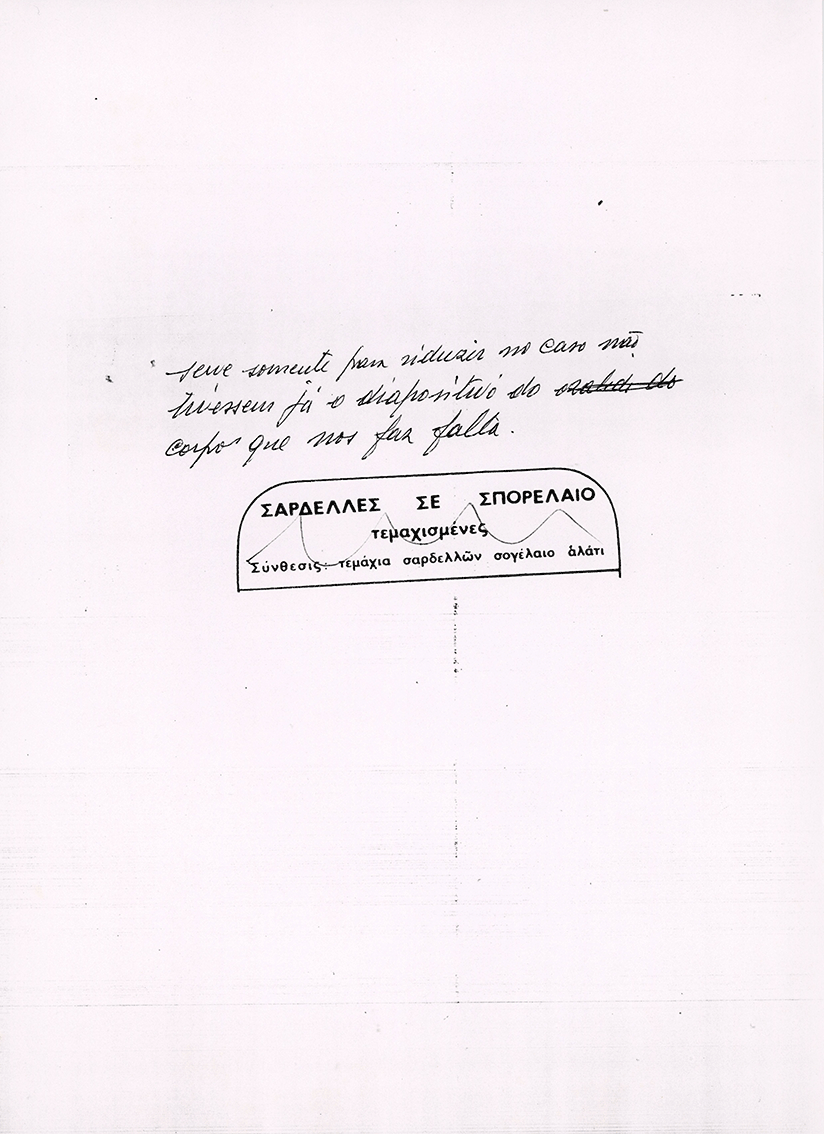 serve somente para reduzir no caso não
tivessem já o diapositivo do
corpo que nos faz falta.
ΣΑΡΔΕΛΛΕΣ ΣΕ ΣΠΟΡΕΛΑΙΟ
τεμαχισμένες
Σύνθεσις: τεμάχια σαρδελλῶν σογέλαιο ἁλάτι